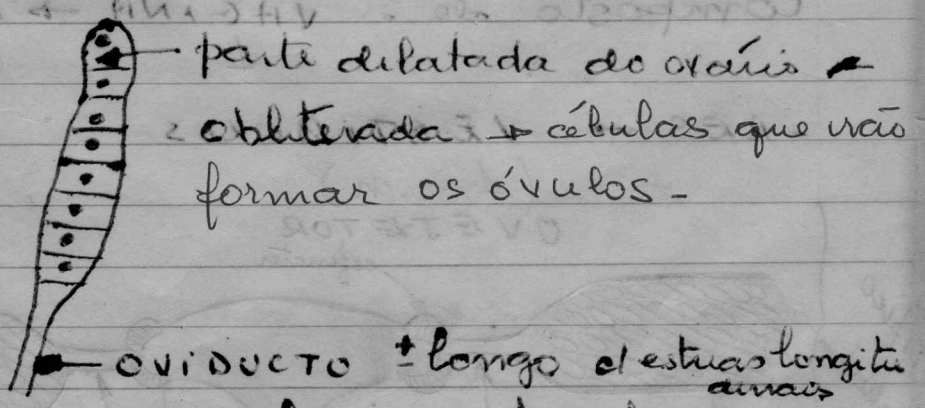 parte dilatada do ovário -
obliterada → células que irão
formar os óvulos -
OVIDUCTO ± longo c/ estrias longitu
dinais